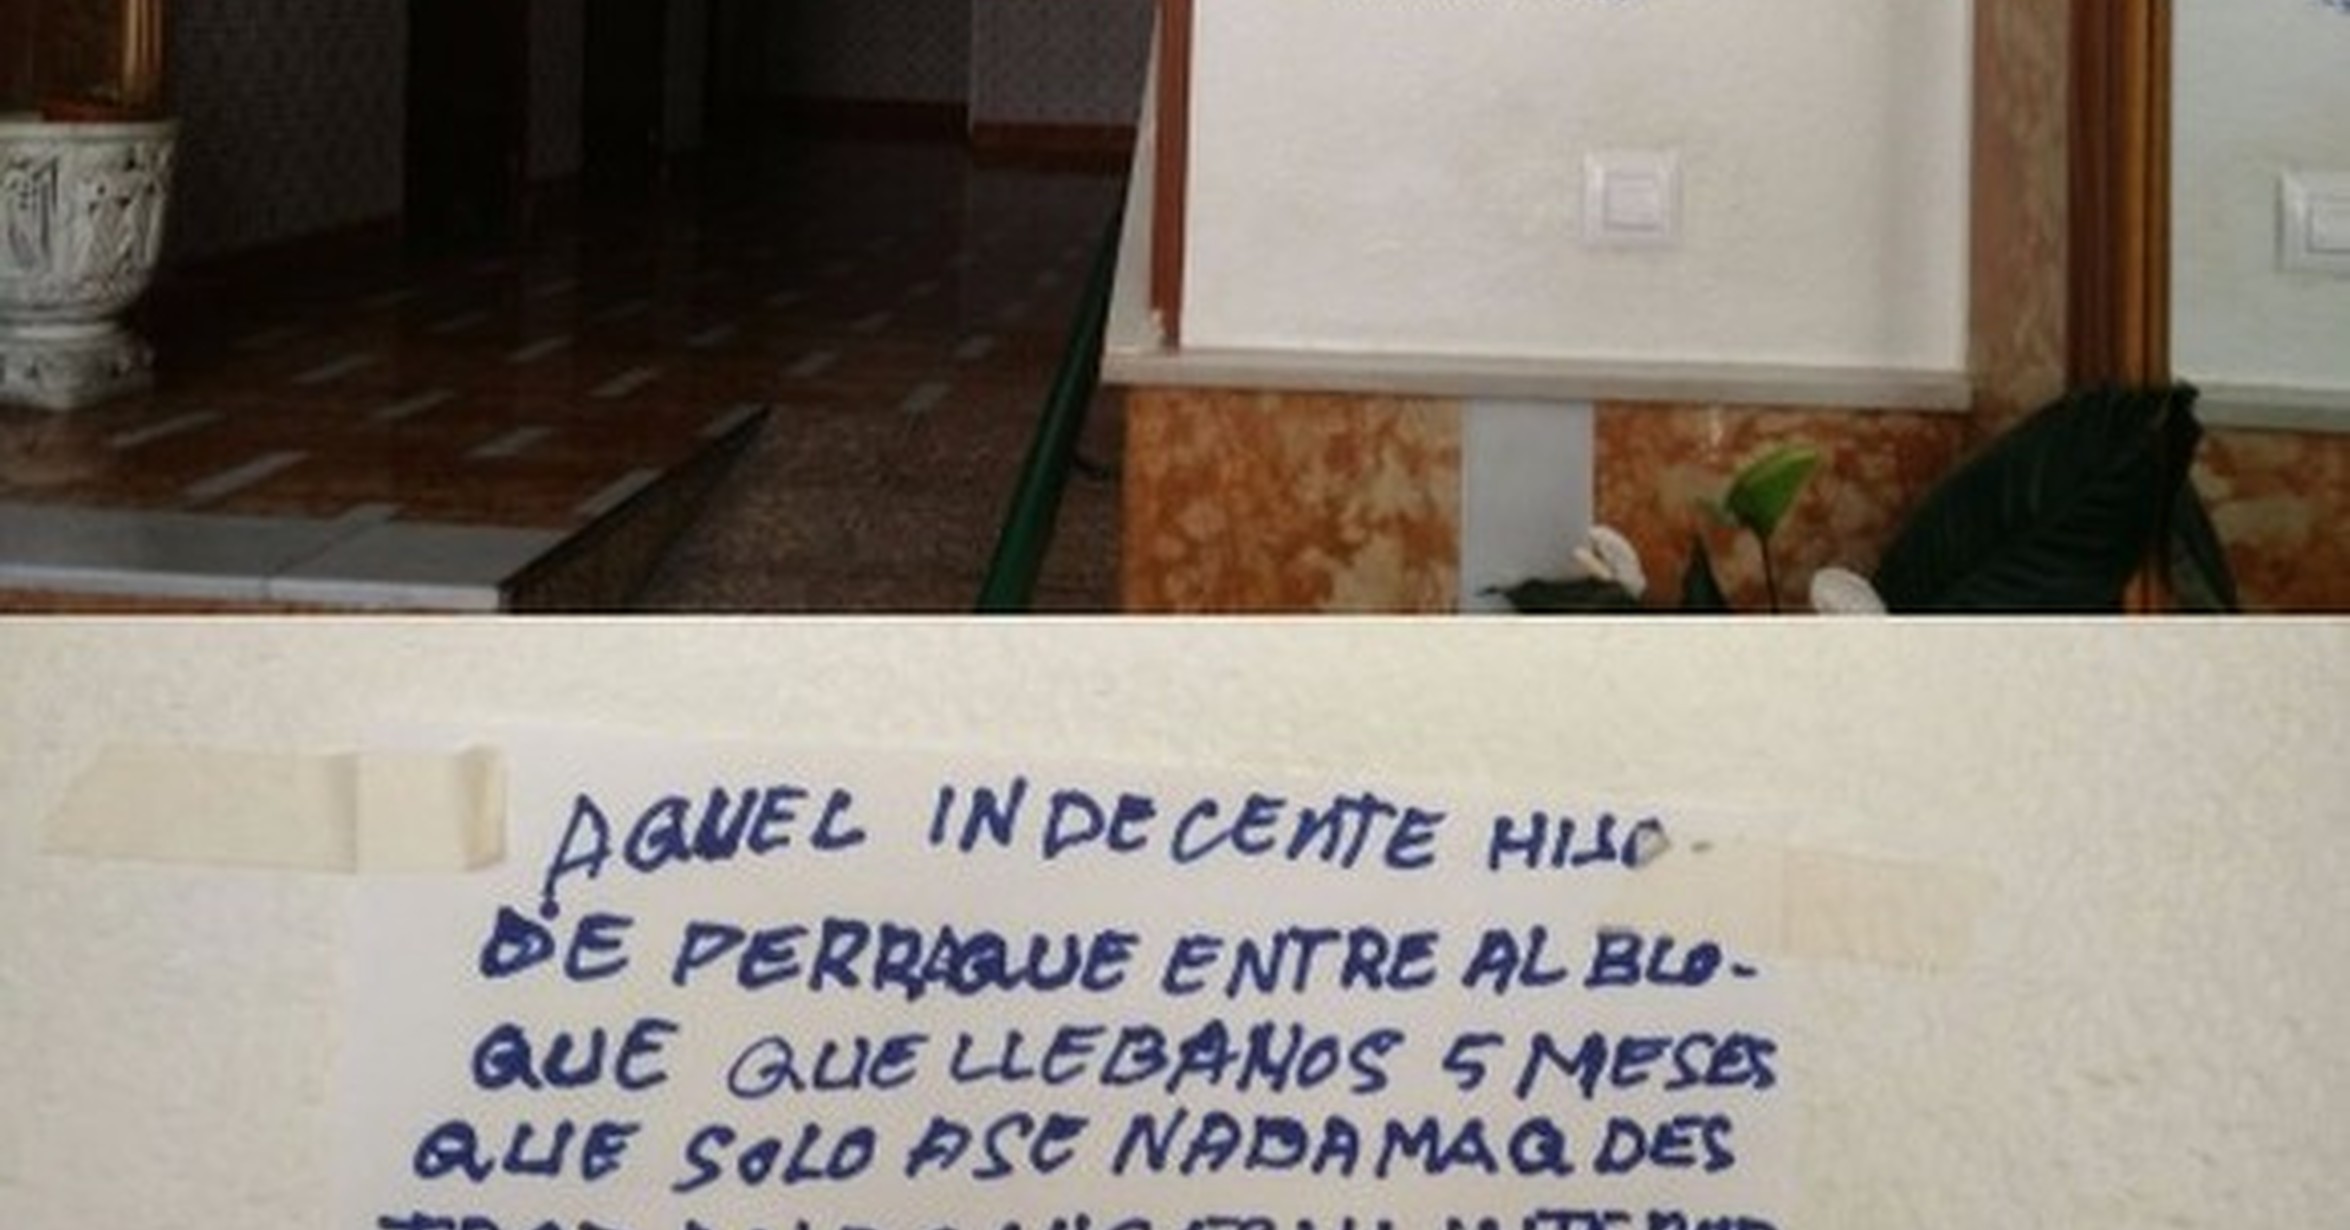 AQUEL INDECENTE HIJO
DE PERRAQUE ENTRE AL BLO-
QUE QUE LLEBAMOS 5 MESES
QUE SOLO ASE NADAMAQ DES